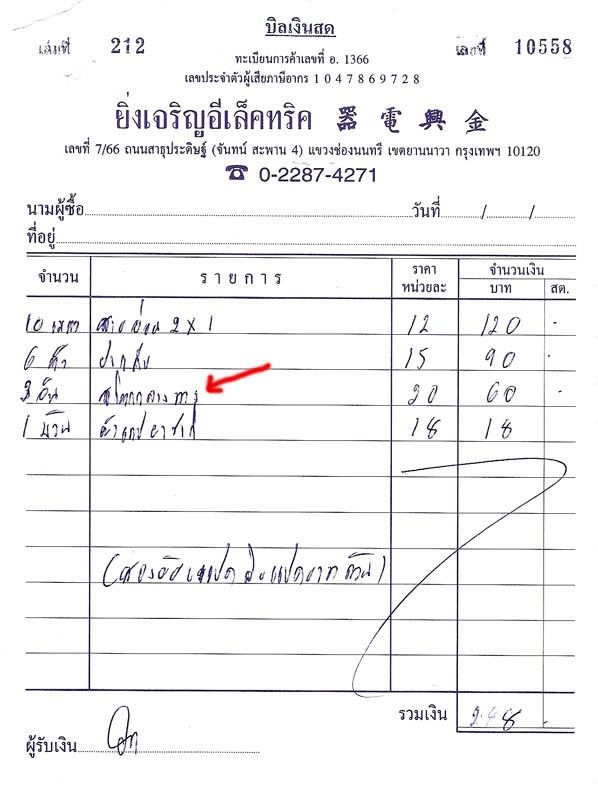 บิลเงินสด
เล่มที่ 212 เลขที่ 10558
ทะเบียนการค้าเลขที่ อ. 1366
เลขประจำตัวผู้เสียภาษีอากร 1 0 4 7 8 6 9 7 2 8
ยิ่งเจริญอีเล็คทริค 器 電 興 金
เลขที่ 7/66 ถนนสาธุประดิษฐ์ (จันทน์ สะพาน 4) แขวงช่องนนทรี เขตยานนาวา กรุงเทพฯ 10120
☎ 0-2287-4271
นามผู้ซื้อ วันที่ / /
ที่อยู่
จำนวน รายการ ราคาหน่วยละ จำนวนเงิน
บาท สต.
10 เมตร สายอ่อน 2 x 1 12 120 -
6 ตัว 15 90 -
3 อัน กลางทาง 20 60 -
1 ม้วน 18 18
(สองร้อยแปดสิบแปดบาทถ้วน)
รวมเงิน 288 -
ผู้รับเงิน